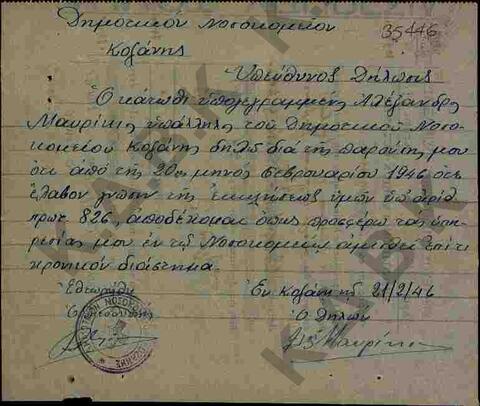 Δημοτικόν Νοσοκομείον
35446
Κοζάνης
Υπεύθυνος Δήλωσις
Ο κάτωθι υπογεγραμμένος Αλέξανδρος
Μαυρίκης υπάλληλος του Δημοτικού Νοσο-
κομείου Κοζάνης δηλώ διά της παρούσης μου
ότι από της 20ης μηνός Φεβρουαρίου 1946 ότε
έλαβον γνώσιν της εκκλήσεως υμών υπ' αριθ
πρωτ 826, αποδέχομαι όπως προσφέρω τας υπη-
ρεσίας μου εν τω Νοσοκομείω αμισθί επί τι
χρονικόν διάστημα.
Εθεωρήθη
Εν Κοζάνη τη 21/2/46
Ο Δηλών
Μαυρίκης